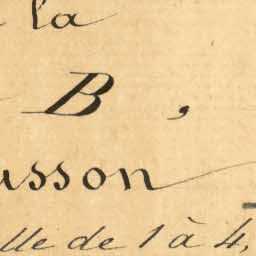 la
B,
usson
lle de 1 à 4,